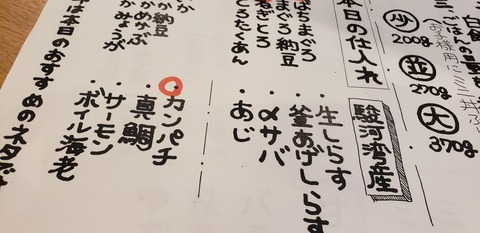 三、ごはんの量
少 200g
並 270g
大 370g
本日の仕入れ
駿河湾産
・生しらす
・釜あげしらす
・〆サバ
・あじ
ばちまぐろ
まぐろ納豆
ねぎとろ
とろたくあん
・カンパチ
・真鯛
・サーモン
・ボイル海老
か納豆
かめかぶ
かみょうが
は本日のおすすめのネタです